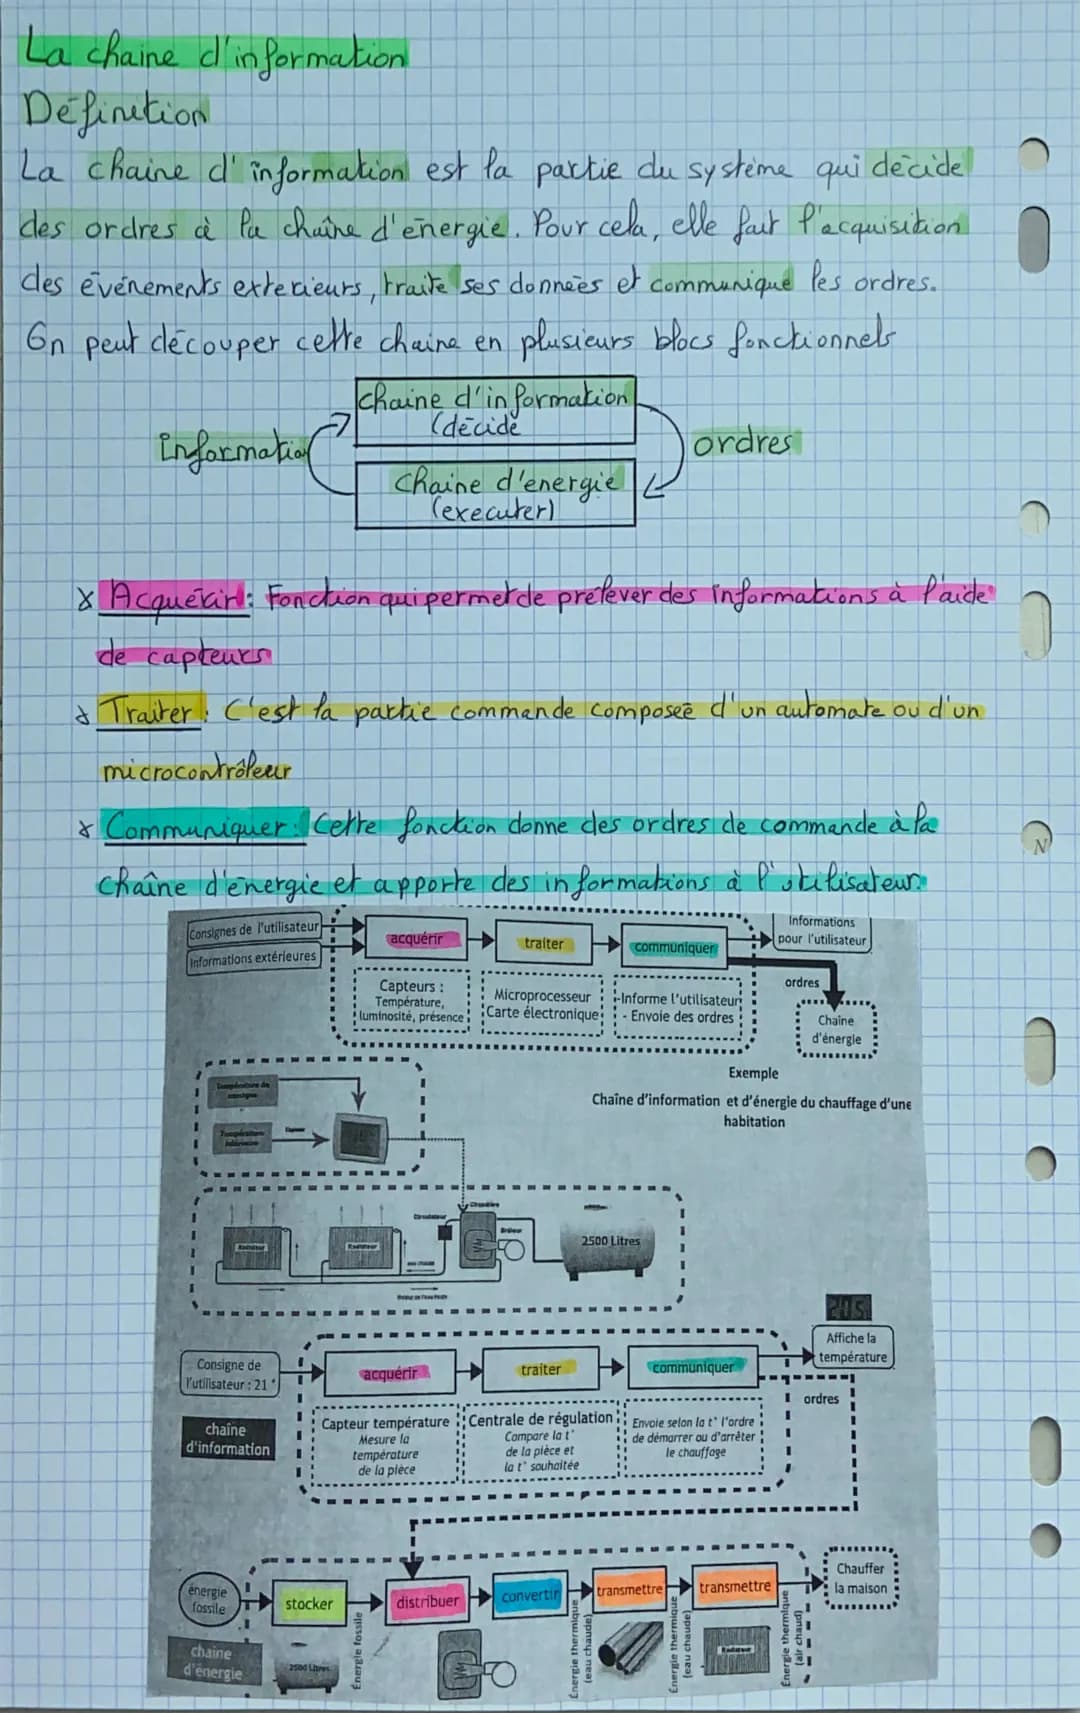 La chaine d'information
Définition
La chaine d'information est la partie du système qui décide
des ordres à la chaîne d'énergie. Pour cela, elle fait l'acquisition
des événements exterieurs, traite ses données et communique les ordres.
On peut découper cette chaine en plusieurs blocs fonctionnels
chaine d'information
(décidé
Information
ordres
chaine d'energie
(executer)
x Acquérir : Fonction qui permet de prélever des informations à l'aide
de capteurs
x Traiter : C'est la partie commande composée d'un automate ou d'un
microcontrôleur
x Communiquer : Cette fonction donne des ordres de commande à la
chaîne d'énergie et apporte des informations à l'utilisateur.
Consignes de l'utilisateur
Informations extérieures
acquérir
traiter
communiquer
Informations
pour l'utilisateur
Capteurs :
Température,
luminosité, présence
Microprocesseur
Carte électronique
-Informe l'utilisateur
- Envoie des ordres
ordres
Chaîne
d'énergie
Exemple
Chaîne d'information et d'énergie du chauffage d'une
habitation
Température de
consigne
Température
intérieure
Capteur
Circulateur
Chaudière
Brûleur
Radiateur
Radiateur
2500 Litres
20.5
Affiche la
température
Consigne de
l'utilisateur : 21°
acquérir
traiter
communiquer
ordres
chaîne
d'information
Capteur température
Mesure la
température
de la pièce
Centrale de régulation
Compare la t°
de la pièce et
la t° souhaitée
Envoie selon la t° l'ordre
de démarrer ou d'arrêter
le chauffage
énergie
fossile
stocker
distribuer
convertir
transmettre
transmettre
Chauffer
la maison
chaine
d'énergie
2500 Litres
Énergie fossile
Énergie thermique
(eau chaude)
Énergie thermique
(eau chaude)
Radiateur
Énergie thermique
(air chaud)
N